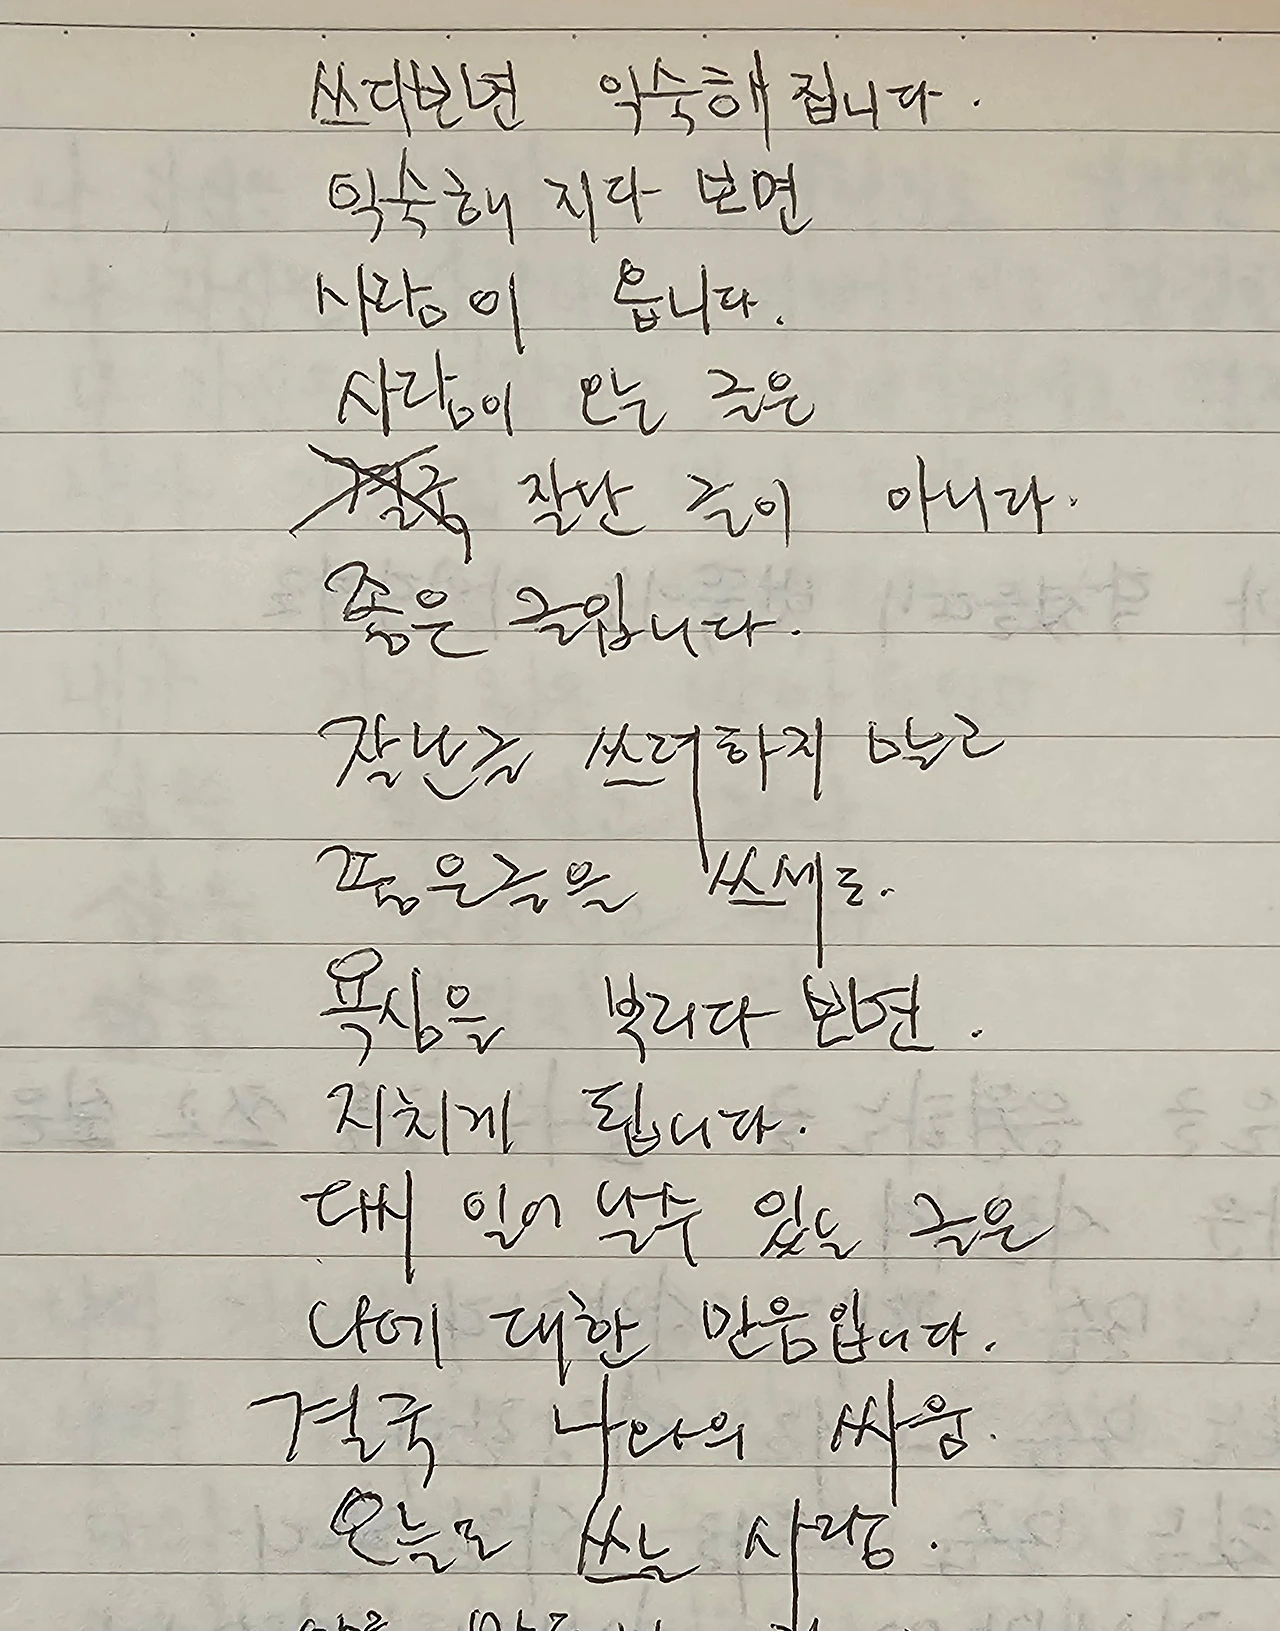 쓰다보면 익숙해 집니다.
익숙해 지다 보면
사람이 옵니다.
사람이 오는 글은
잘난 글이 아니다.
좋은 글입니다.
잘난글 쓰려하지 말고
좋은글을 쓰세요.
욕심을 부리다 보면.
지치게 됩니다.
다시 일어 날수 있는 글은
나에 대한 믿음입니다.
결국 나와의 싸움.
오늘도 쓰는 사람.